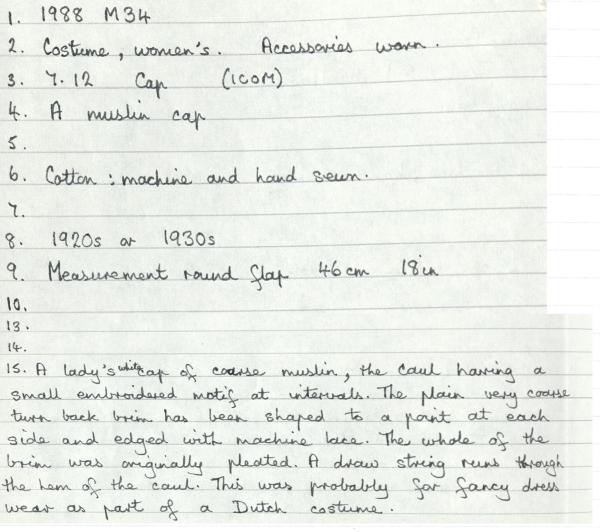 1. 1988 M34
2. Costume, women's. Accessories worn.
3. 7.12 Cap (ICOM)
4. A muslin cap
5.
6. Cotton: machine and hand sewn.
7.
8. 1920s or 1930s
9. Measurement round flap 46cm 18in
10.
13.
14.
15. A lady's white cap of coarse muslin, the caul having a
small embroidered motif at intervals. The plain very coarse
turn back brim has been shaped to a point at each
side and edged with machine lace. The whole of the
brim was originally pleated. A draw string runs through
the hem of the caul. This was probably for fancy dress
wear as part of a Dutch costume.